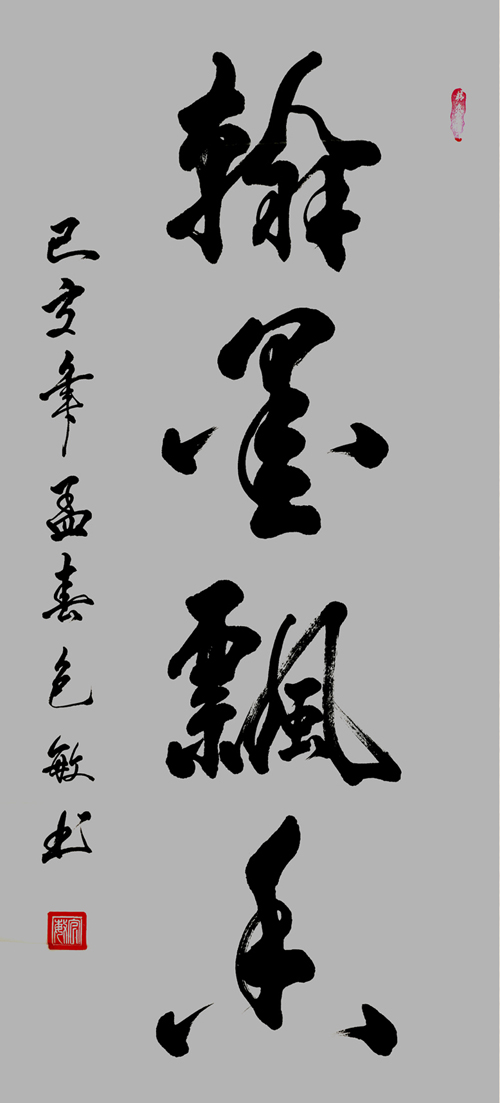 翰墨飄香
己亥年孟春色敏书